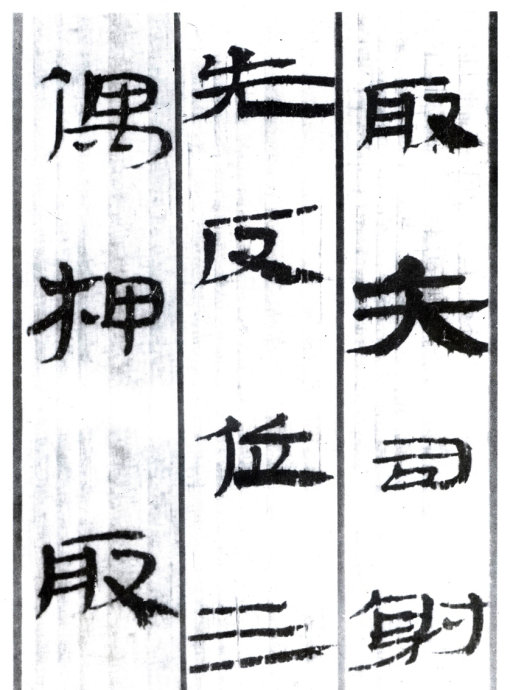 取矢司射
先反位三
偶押取